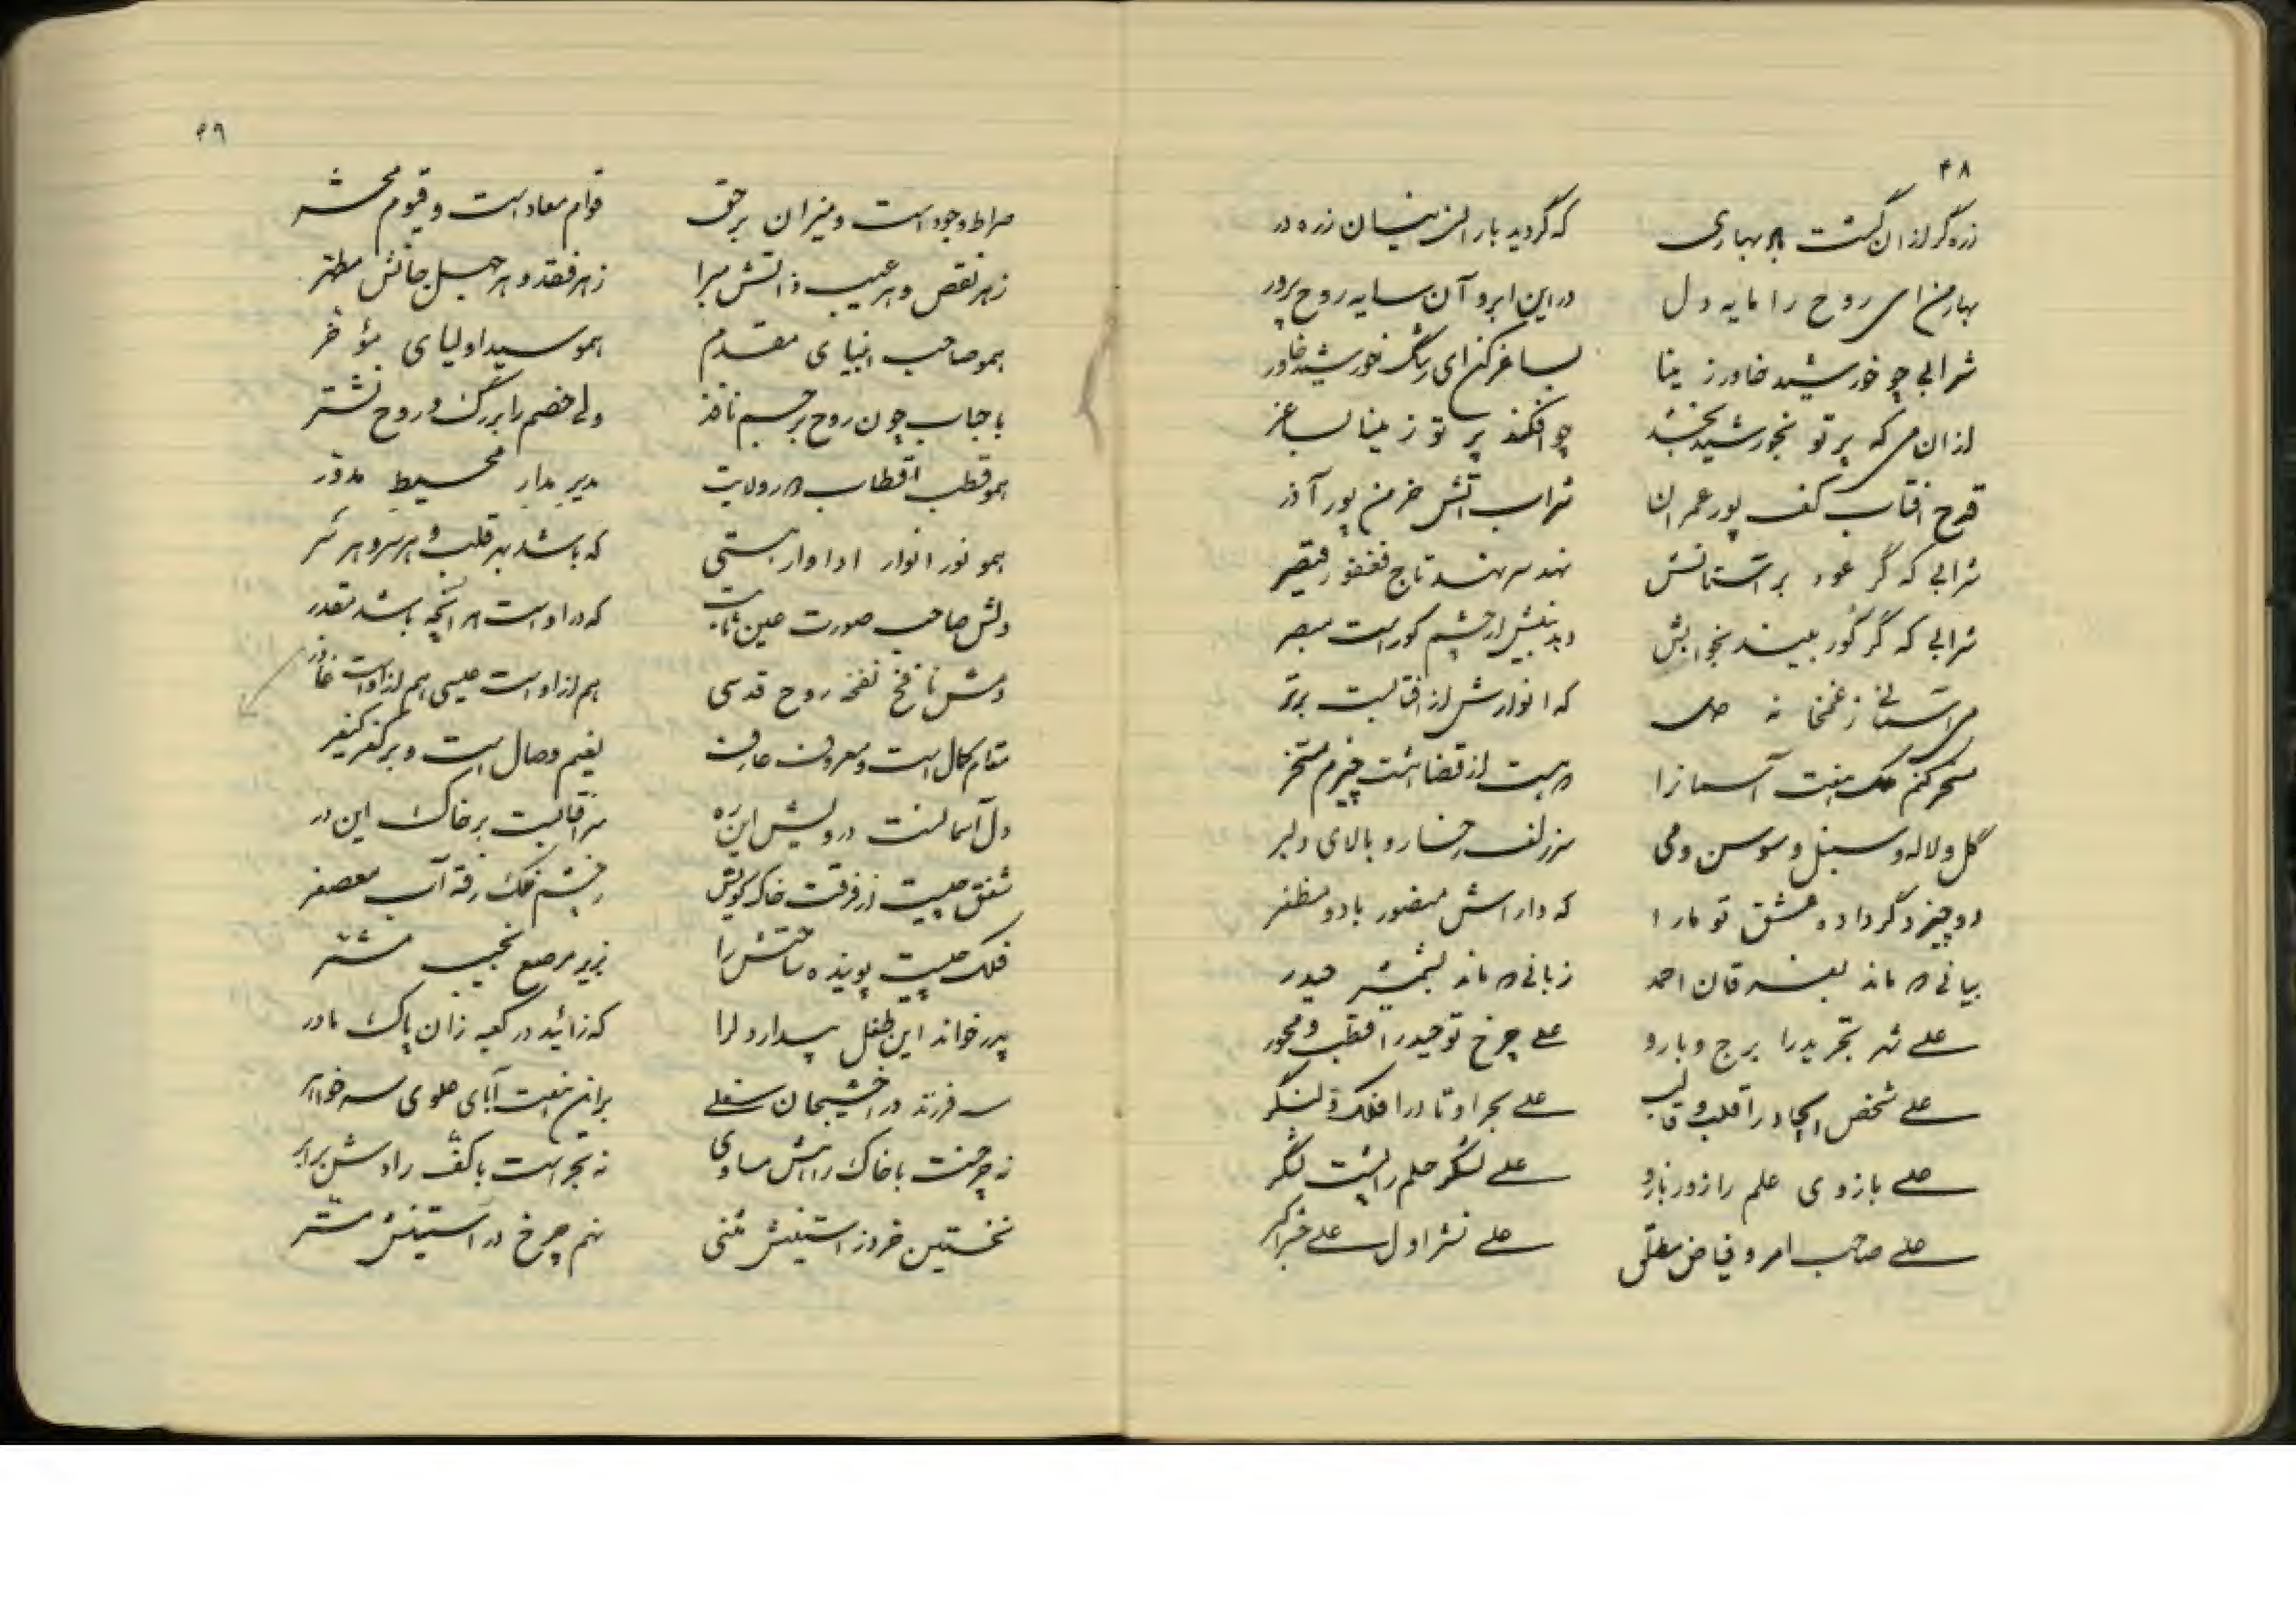 ۴۸
زره گر از ان گشت باد بهاری که گردید باران نیسان زره در
بهار من ای روح را مایه دل در این ابر و آن سایه روح پرور
شرابی چو خورشید خاور ز مینا بساغر کن ای رشگ خورشید خاور
از ان می که پرتو بخورشید بخشد چو افکند پرتو ز مینا بساغر
قدح افتاب کف پور عمران شراب آتش خرمن پور آذر
شرابی که گر عور بر استانش نهد سر نهند تاج فغفور و قیصر
شرابی که گر کور بیند بخوابش
می استانی ز غمخانه که انوارش از افتابست برتر
مسخر کنم ملک هفت آسمانرا
گل و لاله و سنبل و سوسن و می سر زلف و رخسار و بالای دلبر
دو چیز دگر داده عشق تو ما را که داراش منصور باد و مظفر
بیانی که ماند بفرقان احمد زبانی که ماند بشمشیر حیدر
علی شهر تجرید را برج و بارو علی چرخ توحید را قطب و محور
علی شخص ایجاد را قلب و قالب علی بحر اوتاد را فلک و لنگر
علی بازوی علم را زور بازو علی لشگر حلم را پشت لشگر
علی صاحب امر و فیاض مطلق علی نشر اول علی حشر اکبر
۴۹
صراط وجود است و میزان برحق قوام معاد است و قیوم محشر
ز هر نقص و هر عیب ذاتش مبرا ز هر فقد و هر جهل جانش مطهر
همو صاحب انبیای مقدم همو سید اولیای مؤخر
با حباب چون روح بر جسم نافذ ولی خصم را بر رگ و روح نشتر
همو قطب اقطاب دور ولایت مدیر مدار محیط مدور
همو نور انوار ادوار هستی که باشد بهر قلب و هر سر و هر سر
دلش صاحب صورت عین ثابت که در اوست هر آنچه باشد مقدر
دمش نافخ نفخه روح قدسی هم از اوست عیسی هم از اوست عاذر
مقام کمال است و معروف عارف نعیم وصال است و
دل آسمانست درویش این ره سر افتابست بر خاک این در
شفق چیست از فرقت خاک کویش ز چشم فلک رفته آب معصفر
فلک چیست پوینده ساحتش را بزیر مرصع نجیب مشتر
پدر خواند این طفل پیدا و لا را که زائید در کعبه زان پاک مادر
سه فرزند در اخشیجان سفلی بر این هفت آبای علوی سه خواهر
نه چرخست با خاک راهش مساوی نه بحر است با کف رادش برابر
نخستین خرد ز استینش مثنی نهم چرخ در استینش مستر